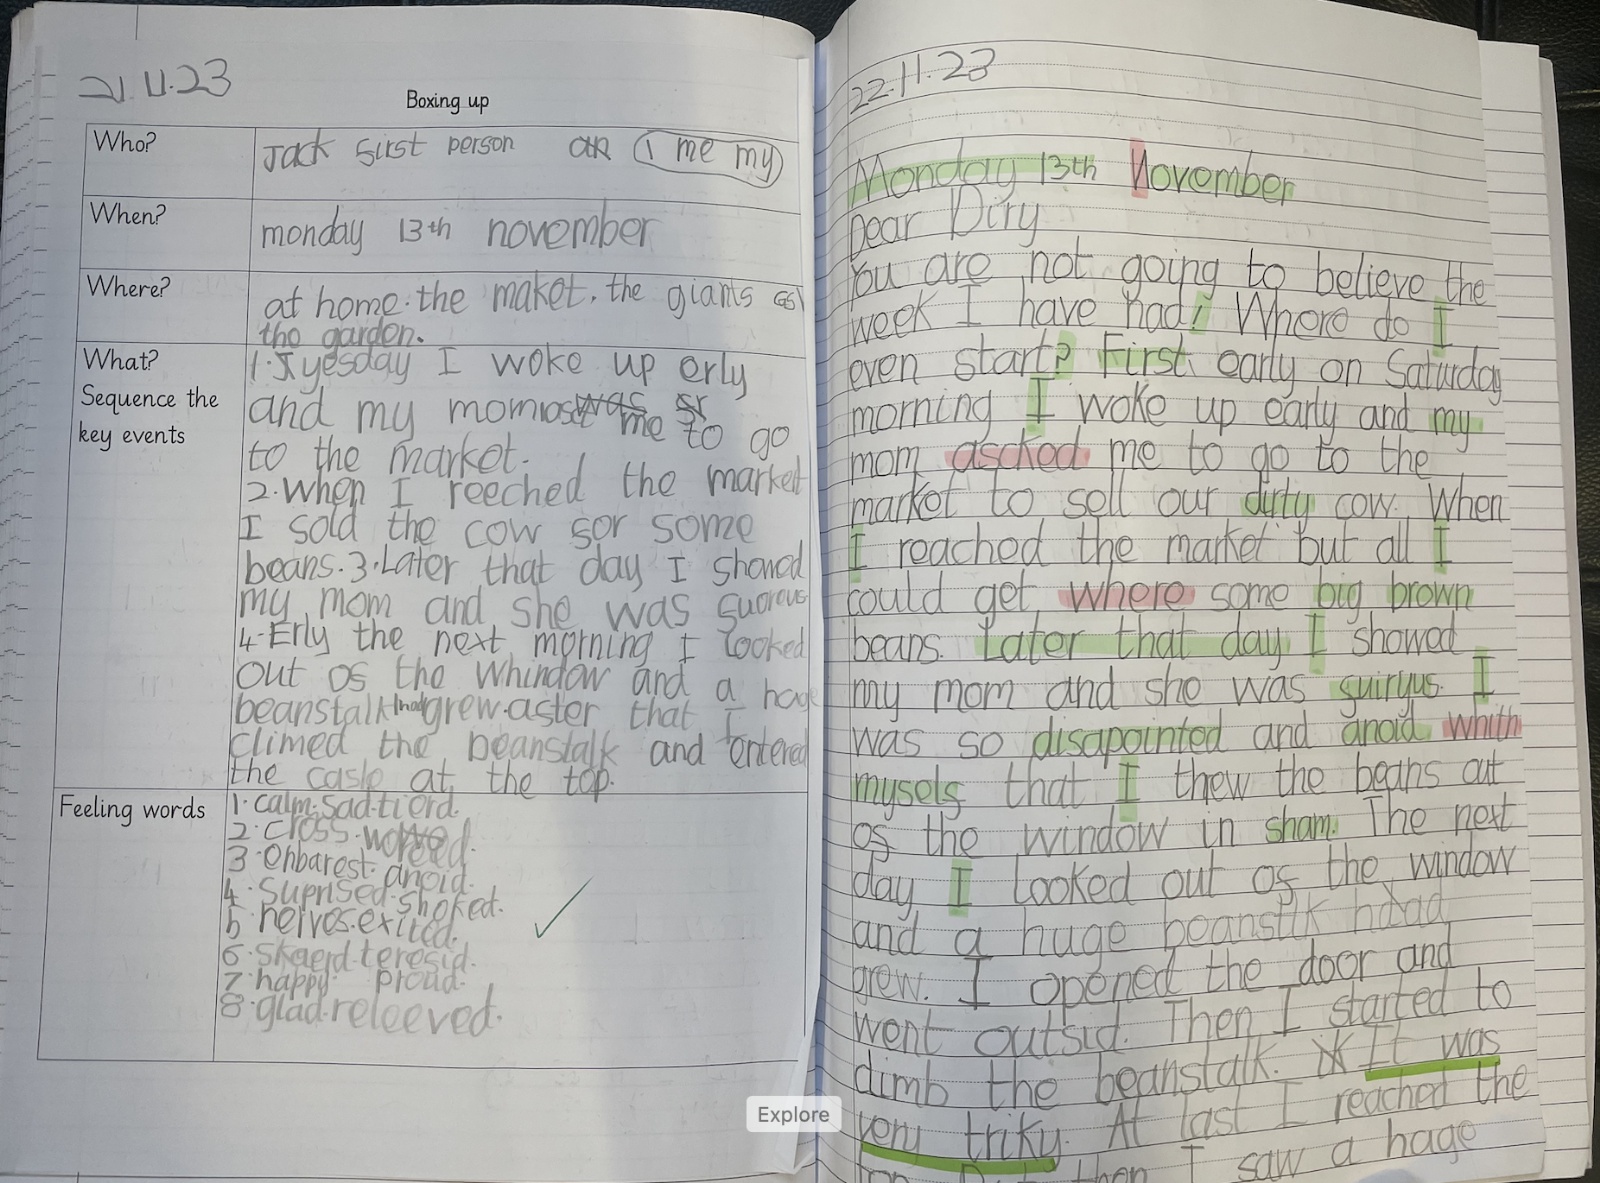 21.11.23
Boxing up
Who?
Jack first person I me my
When?
monday 13th november
Where?
at home. the maket. the giants
the garden.
What?
Sequence the
key events
1. yesday I woke up erly
and my mom me to go
to the market.
2. When I reeched the market
I sold the cow for some
beans. 3. Later that day I showed
my mom and she was
4. Erly the next morning I looked
out of the whindow and a hage
beanstalk had grew. after that I
climed the beanstalk and entered
the casle at the top.
Feeling words
1. calm. sad. tierd.
2. cross.
3. Enbarest. anoid.
4. Suprised. shoked.
5. nerves. exited.
6. skaerd. terefid.
7. happy. proud.
8. glad. releeved.
22.11.23
Monday 13th November
Dear Diry
You are not going to believe the
week I have had! Where do I
even start? First, early on Saturday
morning I woke up early and my
mom ascked me to go to the
market to sell our dirty cow. When
I reached the market but all I
could get, where some big brown
beans. Later that day, I showed
my mom and she was I
was so disapointed and anoid whith
myself that I thew the beans out
of the window in sham. The next
day I looked out of the window
and a huge beanstlk
grew. I opened the door and
went outsid. Then I started to
climb the beanstalk. It was
very triky. At last I reached the
then I saw a hage
Explore